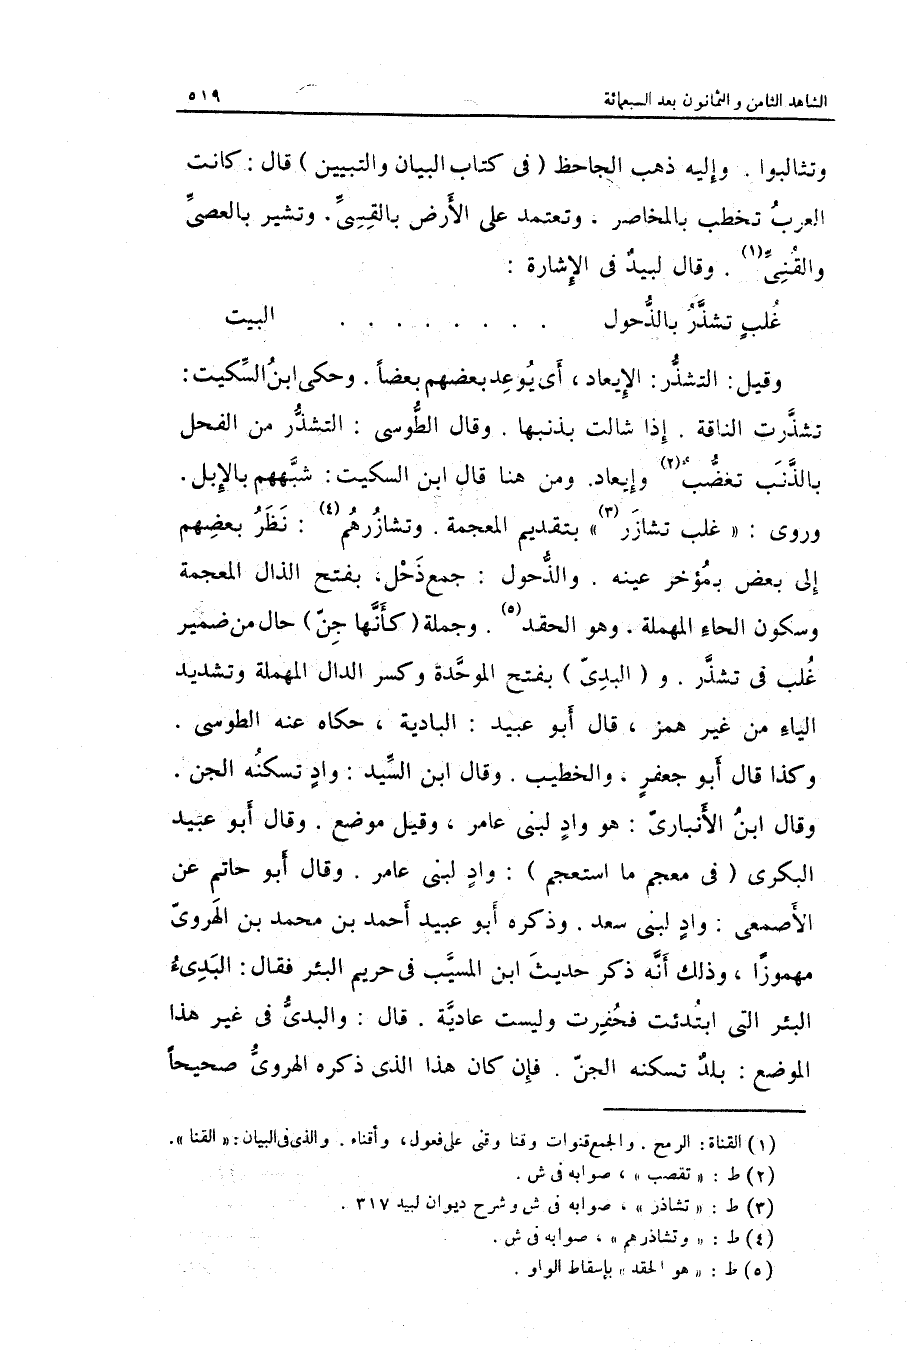 الشاهد الثامن والثمانون بعد السبعمائة ٥١٩
وتثالبوا . وإليه ذهب الجاحظ ( فى كتاب البيان والتبيين ) قال : كانت
العربُ تخطب بالمخاصر ، وتعتمد على الأَرض بالقِسِىِّ . وتشير بالعصىِّ
والقُنِىِّ(١) . وقال لبيدٌ فى الإشارة :
غُلبٍ تشذَّرُ بالذُّحول . . . . . . . . البيت
وقيل : التشذُّر : الإيعاد ، أَى يُوعِد بعضهم بعضاً . وحكى ابنُ السِّكيت :
تشذَّرت الناقة . إذا شالت بذنبها . وقال الطُّوسى : التشذُّر من الفحل
بالذَّنَب تغضُّب(٢) وإيعاد. ومن هنا قال ابن السكيت : شبَّههم بالإبل .
وروى : « غلب تشازَر(٣) » بتقديم المعجمة . وتشازُرهُم(٤) : نَظَرُ بعضِهم
إلى بعض بمُؤخر عينه . والذُّحول : جمع ذَحْل، بفتح الذال المعجمة
وسكون الحاء المهملة . وهو الحقد(٥) . وجملة ( كأَنَّها جِنّ ) حال من ضمير
غُلب فى تشذَّر . و ( البدِىّ ) بفتح الموحَّدة وكسر الدال المهملة وتشديد
الياء من غير همز ، قال أَبو عبيد : البادية ، حكاه عنه الطوسى .
وكذا قال أَبو جعفرٍ ، والخطيب . وقال ابن السِّيد : وادٍ تسكنُه الجن .
وقال ابنُ الأَنبارىّ : هو وادٍ لبنى عامر ، وقيل موضع . وقال أَبو عبيد
البكرى ( فى معجم ما استعجم ) : وادٍ لبنى عامر . وقال أَبو حاتم عن
الأَصمعى : وادٍ لبنى سعد . وذكره أَبو عبيد أَحمد بن محمد بن الهَروىّ
مهموزًا ، وذلك أَنَّه ذكر حديثَ ابن المسيَّب فى حريم البئر فقال : البَدِىءُ
البئر التى ابتُدئت فحُفِرت وليست عاديَّة . قال : والبدىُّ فى غير هذا
الموضع : بلدٌ تسكنه الجنّ . فإن كان هذا الذى ذكره الهروىُّ صحيحاً
(١) القناة : الرمح . والجمع قنوات وقنا وقنى على فعول، وأقناء . والذى فى البيان : « القنا ».
(٢) ط : « تقصب » ، صوابه فى ش .
(٣) ط : « تشاذر » ، صوابه فى ش وشرح ديوان لبيد ٣١٧ .
(٤) ط : « وتشاذرهم » ، صوابه فى ش .
(٥) ط : « هو الحقد » بإسقاط الواو .